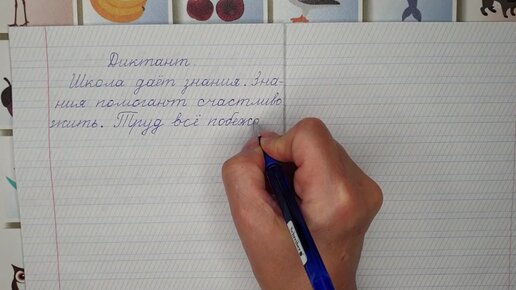 Диктант.
Школа даёт знания. Зна-
ния помогают счастливо
жить. Труд всё побеж